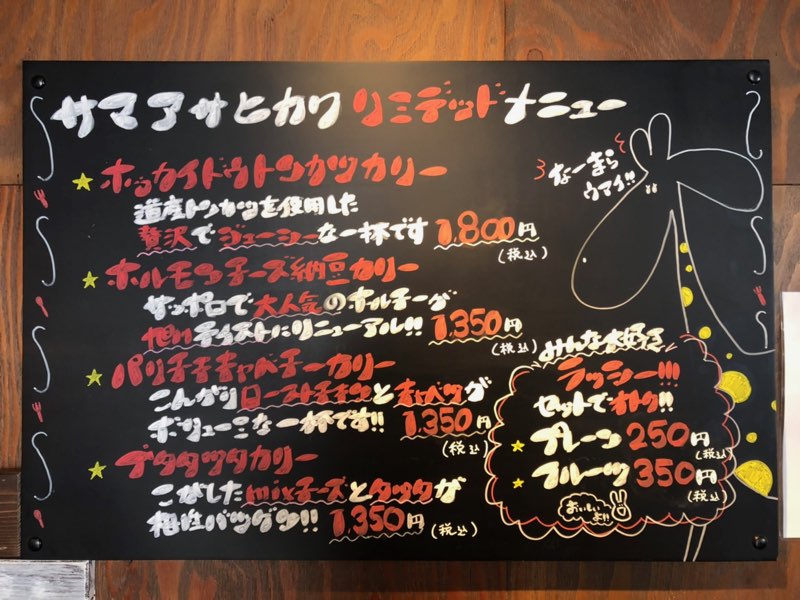 サマアサヒカワ リミテッドメニュー
ホッカイドウトンカツカリー
道産トンカツを使用した
贅沢でジューシーな一杯です 1,800円
(税込)
ホルモンチーズ納豆カリー
サッポロで大人気のホルチーが
旭川テイストにリニューアル!! 1,350円
(税込)
パリチチキャベチーカリー
こんがりローストチキンとキャベツが
ボリューミな一杯です!! 1,350円
(税込)
ブタタッタカリー
こがしたmixチーズとタッタが
相性バツグン!! 1,350円 (税込)
なーまら
ウマイ!!
みんな大好き
ラッシー!!!
セットでオトク!!
プレーン 250円
(税込)
フルーツ 350円
(税込)
おいしい
よ!!